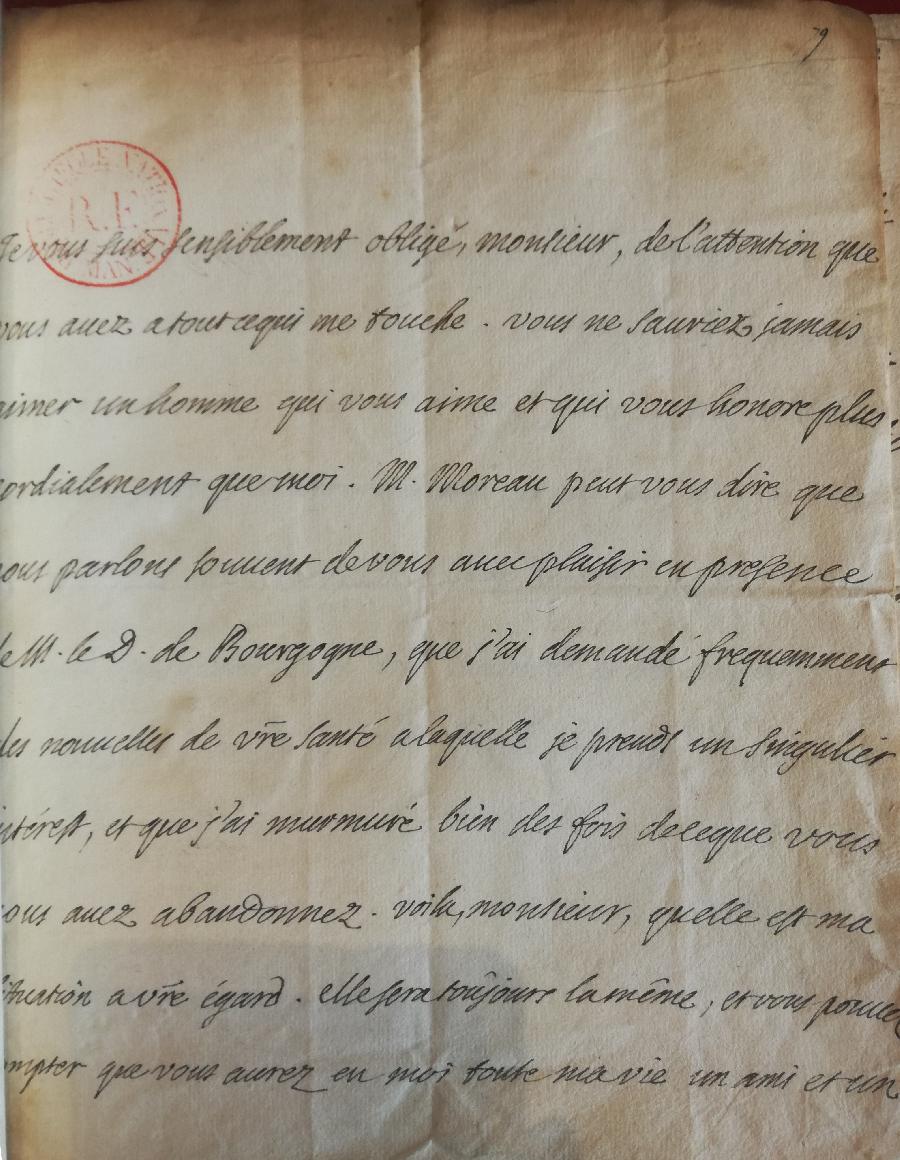 79
BIBLIOTHÈQUE NATIONALE R.F. MAN.
Je vous suis sensiblement obligé, monsieur, de l'attention que
vous auez a tout cequi me touche. vous ne sauriez jamais
aimer un homme qui vous aime et qui vous honore plus
cordialement que moi. M. Moreau peut vous dire que
nous parlons souuent de vous auec plaisir en presence
de M. le D. de Bourgogne, que j'ai demandé frequemment
des nouuelles de vr̃e santé a laquelle je prends un singulier
intérest, et que j'ai murmuré bien des fois de ceque vous
nous auez abandonnez. voila, monsieur, quelle est ma
situation a vr̃e égard. elle sera toûjours la même, et vous pouuez
compter que vous aurez en moi toute ma vie un ami et un